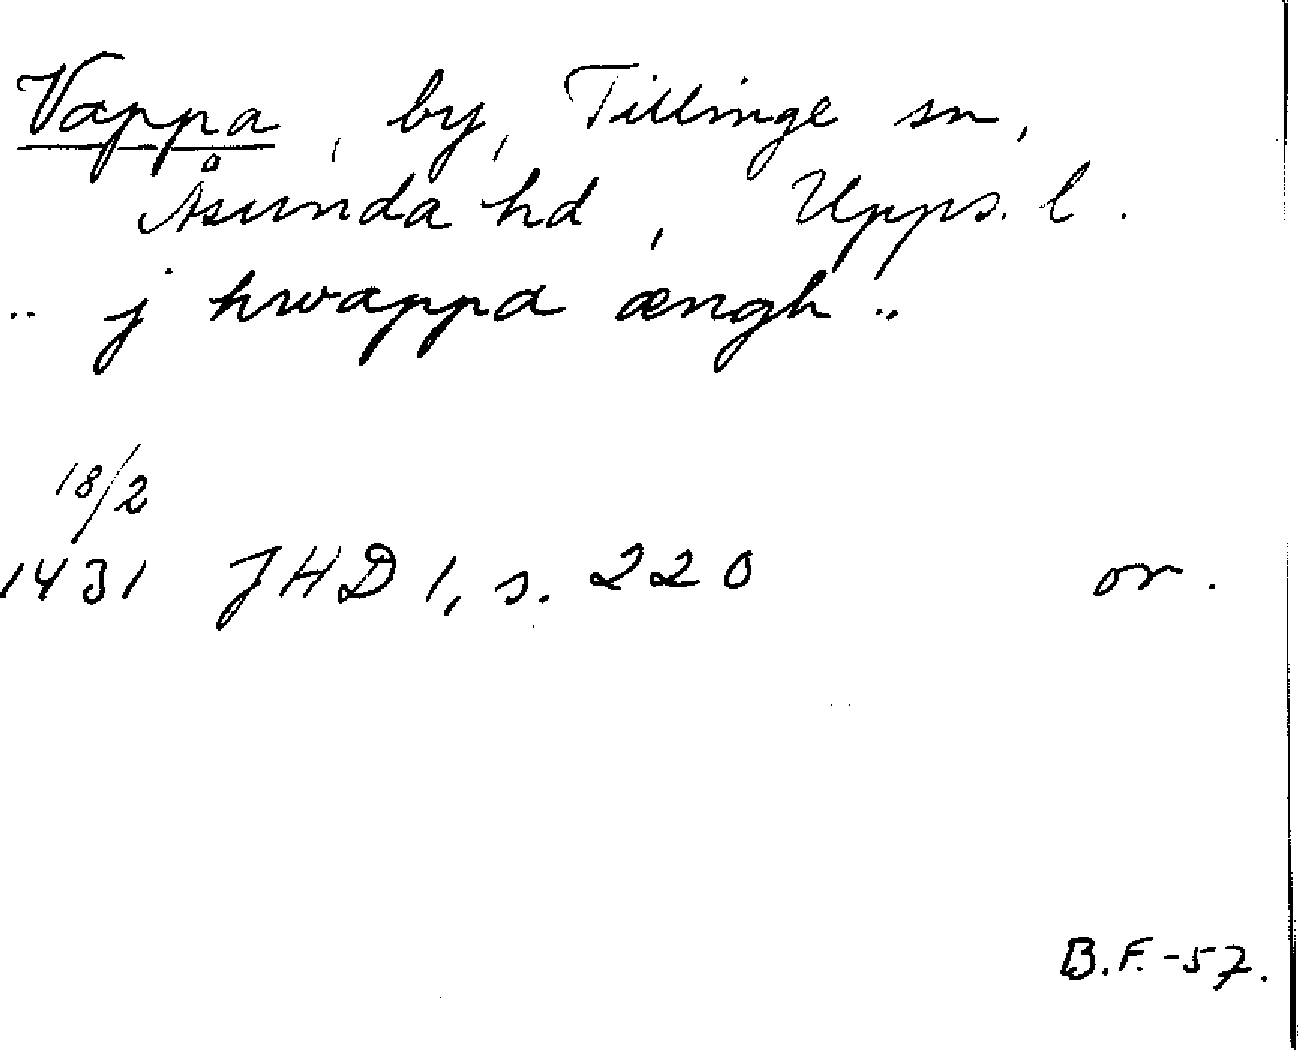 Vappa, by, Tillinge sn,
Åsunda hd, Upps. l.
" j hwappa ængh "
18/2
1431 JHD 1, s. 220 or.
B.F.-57.